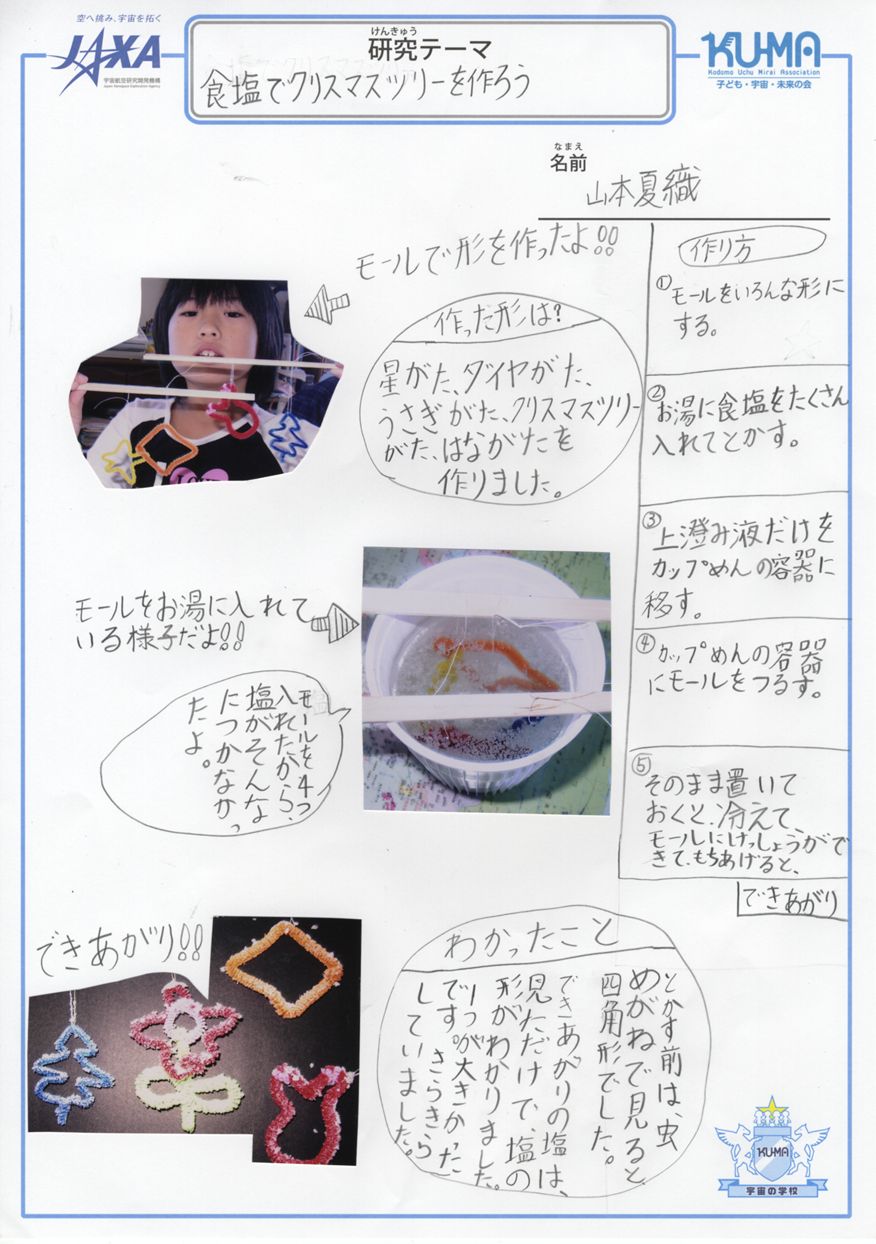 空へ挑み、宇宙を拓く
JAXA
宇宙航空研究開発機構
Japan Aerospace Exploration Agency
けんきゅう
研究テーマ
食塩でクリスマスツリーを作ろう
KU-MA
Kodomo Uchu Mirai Association
子ども・宇宙・未来の会
なまえ
名前
山本夏織
モールで形を作ったよ!!
作った形は?
星がた、ダイヤがた、
うさぎがた、クリスマスツリー
がた、はながたを
作りました。
作り方
①モールをいろんな形に
する。
②お湯に食塩をたくさん
入れてとかす。
③上澄み液だけを
カップめんの容器に
移す。
④カップめんの容器
にモールをつるす。
⑤そのまま置いて
おくと、冷えて、
モールにけっしょうがで
きて、もちあげると、
できあがり
モールをお湯に入れて
いる様子だよ!!
モールを4つ
入れたから、
塩がそんな
につかなかっ
たよ。
できあがり!!
わかったこと
とかす前は、虫
めがねで見ると
四角形でした。
できあがりの塩は、
見ただけで、塩の
形がわかりました。
1つ1つが大きかった
です。きらきら
していました。
KU-MA
宇宙の学校